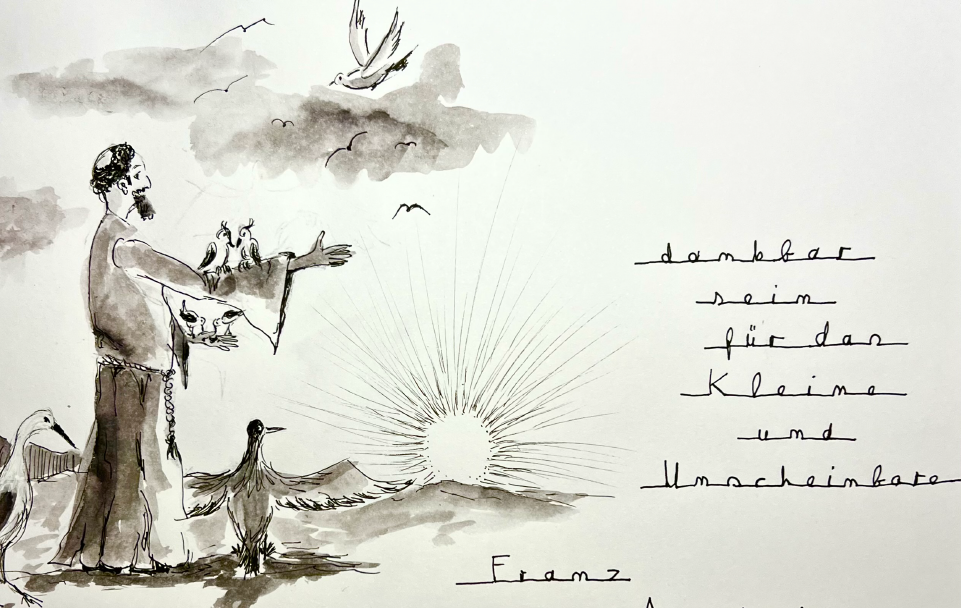 dankbar
sein
für das
Kleine
und
Unscheinbare
Franz